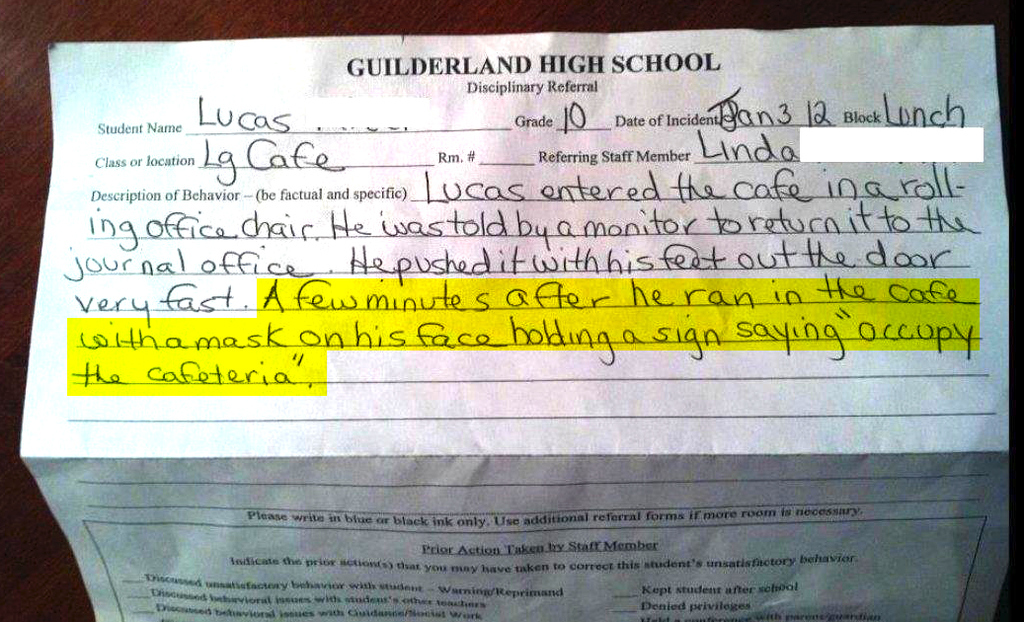 GUILDERLAND HIGH SCHOOL
Disciplinary Referral
Student Name Lucas Grade 10 Date of Incident Jan 3 12 Block Lunch
Class or location Lg Cafe Rm. # Referring Staff Member Linda
Description of Behavior – (be factual and specific) Lucas entered the cafe in a roll-
ing office chair. He was told by a monitor to return it to the
journal office. He pushed it with his feet out the door
very fast. A few minutes after he ran in the cafe
with a mask on his face holding a sign saying "occupy
the cafeteria".
Please write in blue or black ink only. Use additional referral forms if more room is necessary.
Prior Action Taken by Staff Member
Indicate the prior action(s) that you may have taken to correct this student's unsatisfactory behavior.
Discussed unsatisfactory behavior with student – Warning/Reprimand Kept student after school
Discussed behavioral issues with student's other teachers Denied privileges
Discussed behavioral issues with Guidance/Social Work Held a conference with parent/guardian